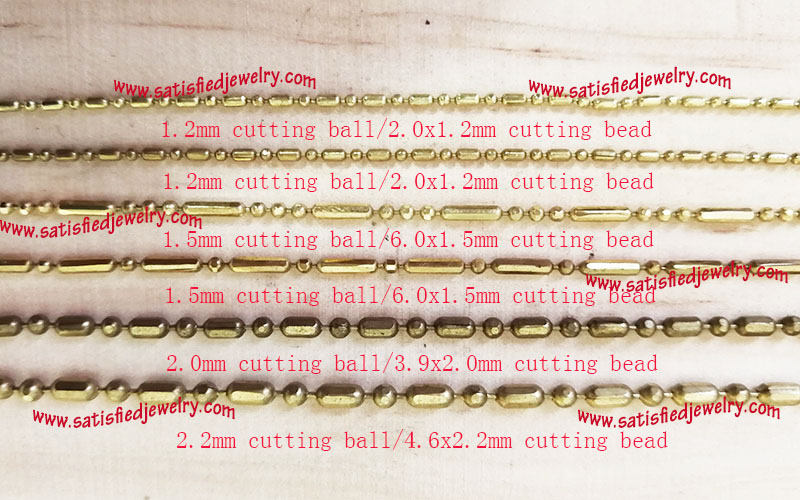 www.satisfiedjewelry.com
www.satisfiedjewelry.com
1.2mm cutting ball/2.0x1.2mm cutting bead
1.2mm cutting ball/2.0x1.2mm cutting bead
www.satisfiedjewelry.com
1.5mm cutting ball/6.0x1.5mm cutting bead
www.satisfiedjewelry.com
1.5mm cutting ball/6.0x1.5mm cutting bead
2.0mm cutting ball/3.9x2.0mm cutting bead
www.satisfiedjewelry.com
www.satisfiedjewelry.com
2.2mm cutting ball/4.6x2.2mm cutting bead